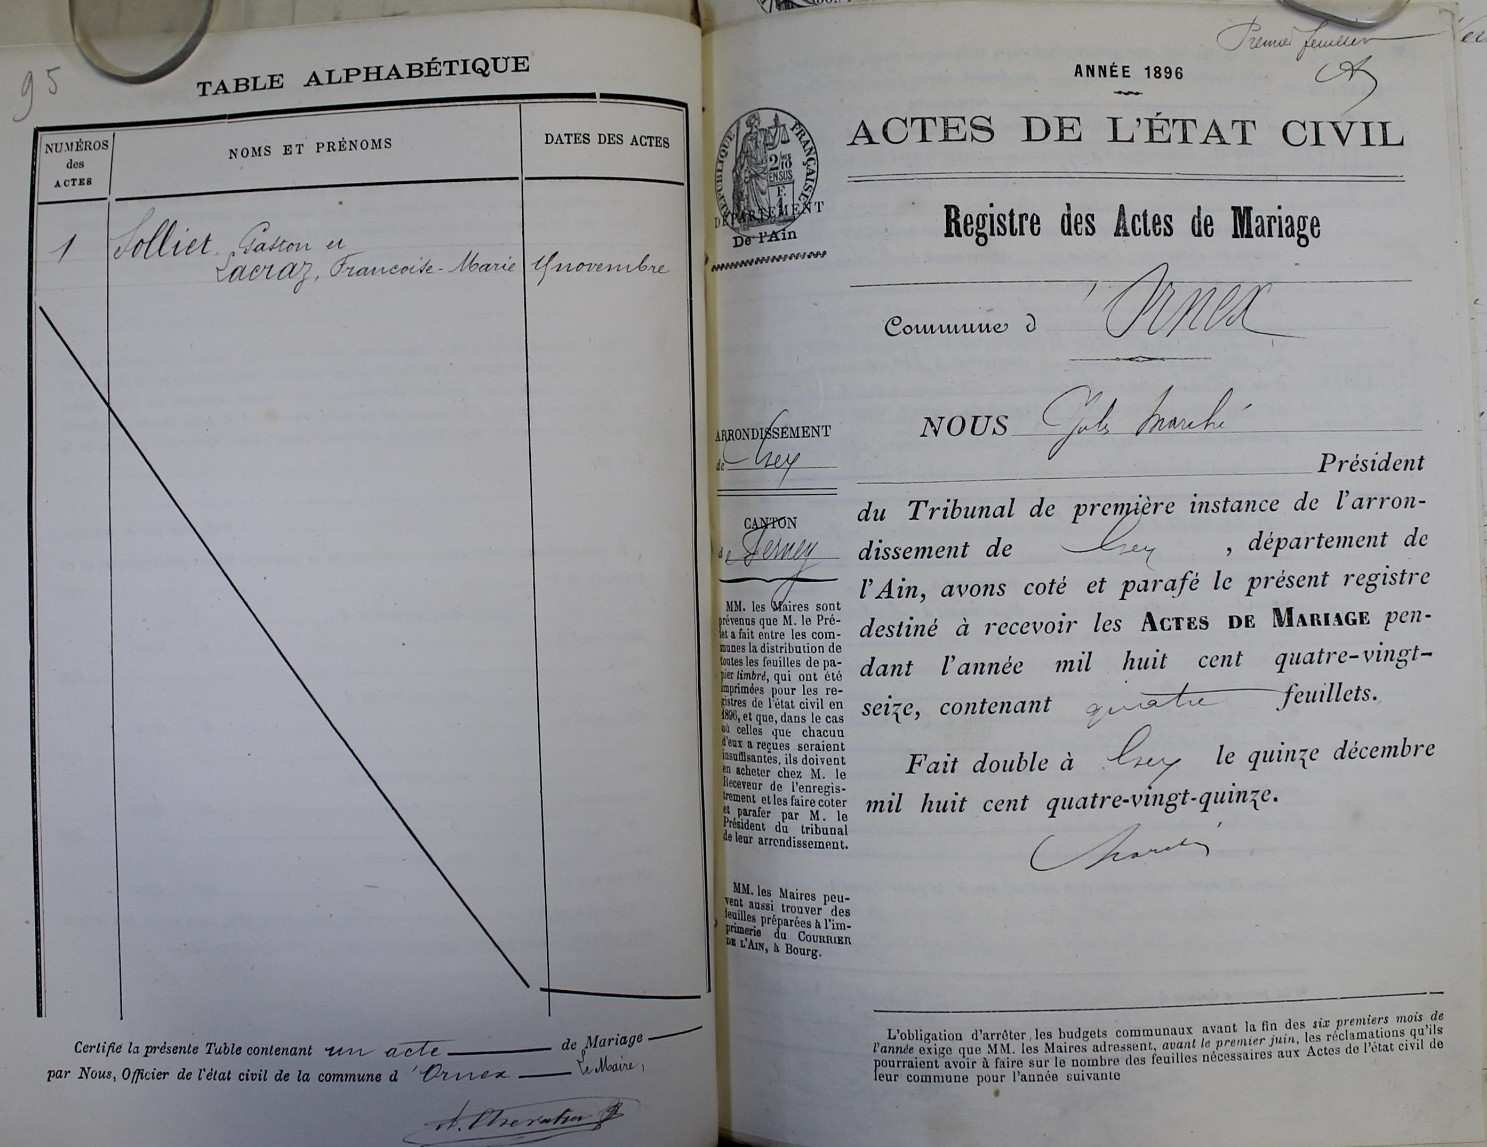 95
TABLE ALPHABÉTIQUE
NUMÉROS
des
ACTES
NOMS ET PRÉNOMS
DATES DES ACTES
1
Solliet Gaston et
Lacraz, Francoise-Marie
novembre
Certifie la présente Tuble contenant un acte de Mariage
par Nous, Officier de l'état civil de la commune d'Ornex
Le Maire,
Premier feuillet
ANNÉE 1896
ACTES DE L'ÉTAT CIVIL
RÉPUBLIQUE FRANÇAISE
DÉPARTEMENT
De l'Ain
Registre des Actes de Mariage
Commune d'Ornex
ARRONDISSEMENT
de Gex
CANTON
de Ferney
MM. les Maires sont
prévenus que M. le Pré-
fet a fait entre les com-
munes la distribution de
toutes les feuilles de pa-
pier timbré, qui ont été
imprimées pour les re-
gistres de l'état civil en
1896, et que, dans le cas
où celles que chacun
d'eux a reçues seraient
insuffisantes, ils doivent
en acheter chez M. le
Receveur de l'enregis-
trement et les faire coter
et parafer par M. le
Président du tribunal
de leur arrondissement.
MM. les Maires peu-
vent aussi trouver des
feuilles préparées à l'im-
primerie du COURRIER
DE L'AIN, à Bourg.
NOUS Jules Marché
Président
du Tribunal de première instance de l'arron-
dissement de Gex, département de
l'Ain, avons coté et parafé le présent registre
destiné à recevoir les ACTES DE MARIAGE pen-
dant l'année mil huit cent quatre-vingt-
seize, contenant quatre feuillets.
Fait double à Gex le quinze décembre
mil huit cent quatre-vingt-quinze.
Marché
L'obligation d'arrêter les budgets communaux avant la fin des six premiers mois de
l'année exige que MM. les Maires adressent, avant le premier juin, les réclamations qu'ils
pourraient avoir à faire sur le nombre des feuilles nécessaires aux Actes de l'état civil de
leur commune pour l'année suivante